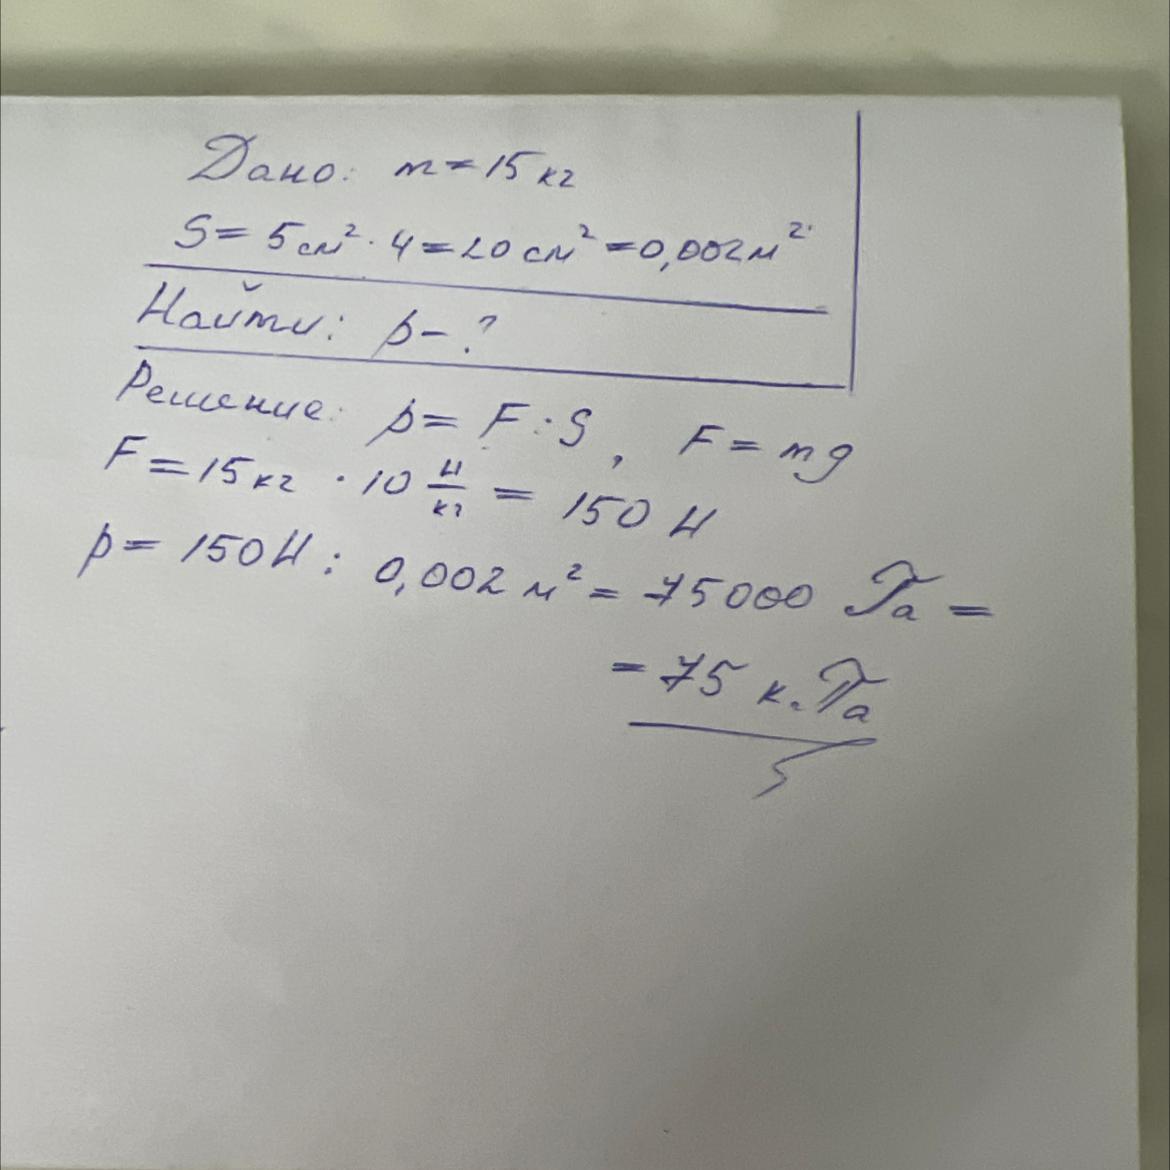 Дано: m = 15 кг
S = 5 см² · 4 = 20 см² = 0,002 м²
Найти: p - ?
Решение: p = F : S, F = mg
F = 15 кг · 10 Н/кг = 150 Н
p = 150 Н : 0,002 м² = 75000 Па =
= 75 кПа